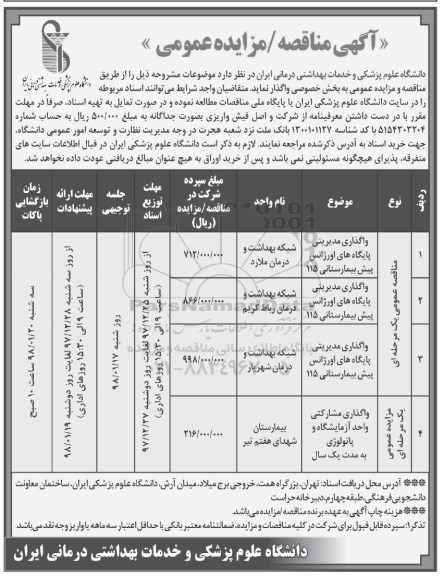 «آگهی مناقصه/مزایده عمومی»
دانشگاه علوم پزشکی و خدمات بهداشتی درمانی ایران در نظر دارد موضوعات مشروحه ذیل را از طریق
مناقصه و مزایده عمومی به بخش خصوصی واگذار نماید. متقاضیان واجد شرایط می‌توانند اسناد مربوطه
را در سایت دانشگاه علوم پزشکی ایران یا پایگاه ملی مناقصات مطالعه نموده و در صورت تمایل به تهیه اسناد، صرفاً در مهلت
مقرر با در دست داشتن معرفینامه از شرکت و اصل فیش واریزی بصورت جداگانه به مبلغ ۵۰۰/۰۰۰ ریال به حساب شماره
۵۱۵۴۳۰۳۲۰۴ با کد شناسه ۱۳۰۰۱۰۱۱۲۷ بانک ملت نزد شعبه هجرت در وجه مدیریت نظارت و توسعه امور عمومی دانشگاه،
جهت خرید اسناد به آدرس ذکرشده مراجعه نمایند. لازم به ذکر است دانشگاه علوم پزشکی ایران در قبال اطلاعات سایت های
متفرقه، پذیرای هیچگونه مسئولیتی نمی باشد و پس از خرید اوراق به هیچ عنوان مبالغ دریافتی عودت داده نخواهد شد.
ردیف نوع موضوع نام واحد مبلغ سپرده شرکت در مناقصه/مزایده (ریال) مهلت توزیع اسناد جلسه توجیهی مهلت ارائه پیشنهادات زمان بازگشایی پاکات
۱ واگذاری مدیریتی پایگاه های اورژانس پیش بیمارستانی ۱۱۵ شبکه بهداشت و درمان ملارد ۷۱۲/۰۰۰/۰۰۰
۲ واگذاری مدیریتی پایگاه های اورژانس پیش بیمارستانی ۱۱۵ شبکه بهداشت و درمان رباط کریم ۸۶۶/۰۰۰/۰۰۰
۳ واگذاری مدیریتی پایگاه های اورژانس پیش بیمارستانی ۱۱۵ شبکه بهداشت و درمان شهریار ۹۹۸/۰۰۰/۰۰۰
مناقصه عمومی یک مرحله ای
۴ مزایده عمومی یک مرحله ای واگذاری مشارکتی واحد آزمایشگاه و پاتولوژی به مدت یک سال بیمارستان شهدای هفتم تیر ۲۱۶/۰۰۰/۰۰۰
از روز شنبه ۹۷/۱۲/۲۵ لغایت روز دوشنبه ۹۷/۱۲/۲۷ (ساعت ۹ الی ۱۵:۳۰ روزهای اداری)
روز شنبه ۹۸/۰۱/۱۷
از روز سه شنبه ۹۷/۱۲/۲۸ لغایت روز دوشنبه ۹۸/۰۱/۱۹ (ساعت ۹ الی ۱۵:۳۰ روزهای اداری)
سه شنبه ۹۸/۰۱/۲۰ ساعت ۱۰ صبح
*** آدرس محل دریافت اسناد: تهران، بزرگراه همت، خروجی برج میلاد، میدان آرش، دانشگاه علوم پزشکی ایران، ساختمان معاونت
دانشجویی فرهنگی، طبقه چهارم، دبیرخانه حراست
*** هزینه چاپ آگهی به عهده برنده مناقصه/مزایده می‌باشد.
تذکر۱: سپرده قابل قبول برای شرکت در کلیه مناقصات و مزایده، ضمانتنامه معتبر بانکی با حداقل اعتبار سه ماهه یا واریز وجه نقد می‌باشد.
دانشگاه علوم پزشکی و خدمات بهداشتی درمانی ایران